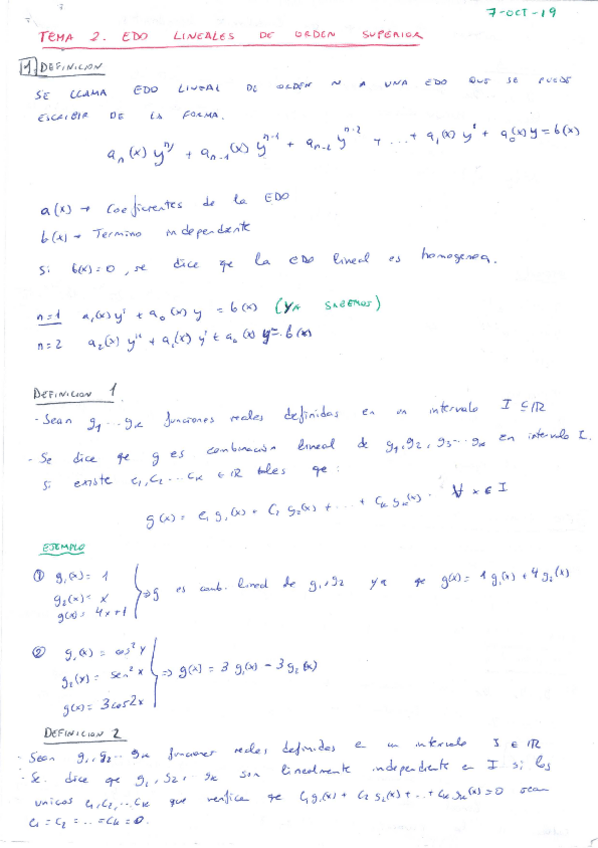 7-OCT-19
TEMA 2. EDO LINEALES DE ORDEN SUPERIOR
1 DEFINICION
SE LLAMA EDO LINEAL DE ORDEN N A UNA EDO QUE SE PUEDE
ESCRIBIR DE LA FORMA.
aₙ(x) yⁿ⁾ + aₙ₋₁(x) yⁿ⁻¹ + aₙ₋₂ yⁿ⁻² + ... + a₁(x) y' + a₀(x) y = b(x)
a(x) → Coeficientes de la EDO
b(x) → Termino independiente
Si b(x)=0, se dice que la EDO lineal es homogenea.
n=1 a₁(x) y' + a₀(x) y = b(x) (YA SABEMOS)
n=2 a₂(x) y'' + a₁(x) y' + a₀(x) y = b(x)
DEFINICION 1
- Sean g₁ ... gₖ funciones reales definidas en un intervalo I ⊆ ℝ
- Se dice que g es combinación lineal de g₁, g₂, g₃ ... gₖ en intervalo I.
si existe c₁, c₂ ... cₖ ∈ ℝ tales que:
g(x) = c₁ g₁(x) + c₂ g₂(x) + ... + cₖ gₖ(x). ∀ x ∈ I
EJEMPLO
① g₁(x) = 1
g₂(x) = x
g(x) = 4x+1
⇒ g es comb. lineal de g₁, g₂ ya que g(x) = 1 g₁(x) + 4 g₂(x)
② g₁(x) = cos² x
g₂(x) = sen² x
g(x) = 3cos2x
⇒ g(x) = 3 g₁(x) - 3 g₂(x)
DEFINICION 2
- Sean g₁, g₂ ... gₖ funciones reales definidas e un intervalo I ∈ ℝ
- Se dice que g₁, g₂, gₖ son linealmente independiente en I si los
unicos c₁, c₂, ... cₖ que verifica que c₁g₁(x) + c₂ g₂(x) + ... + cₖ gₖ(x) = 0 sean
c₁ = c₂ = ... = cₖ = 0.